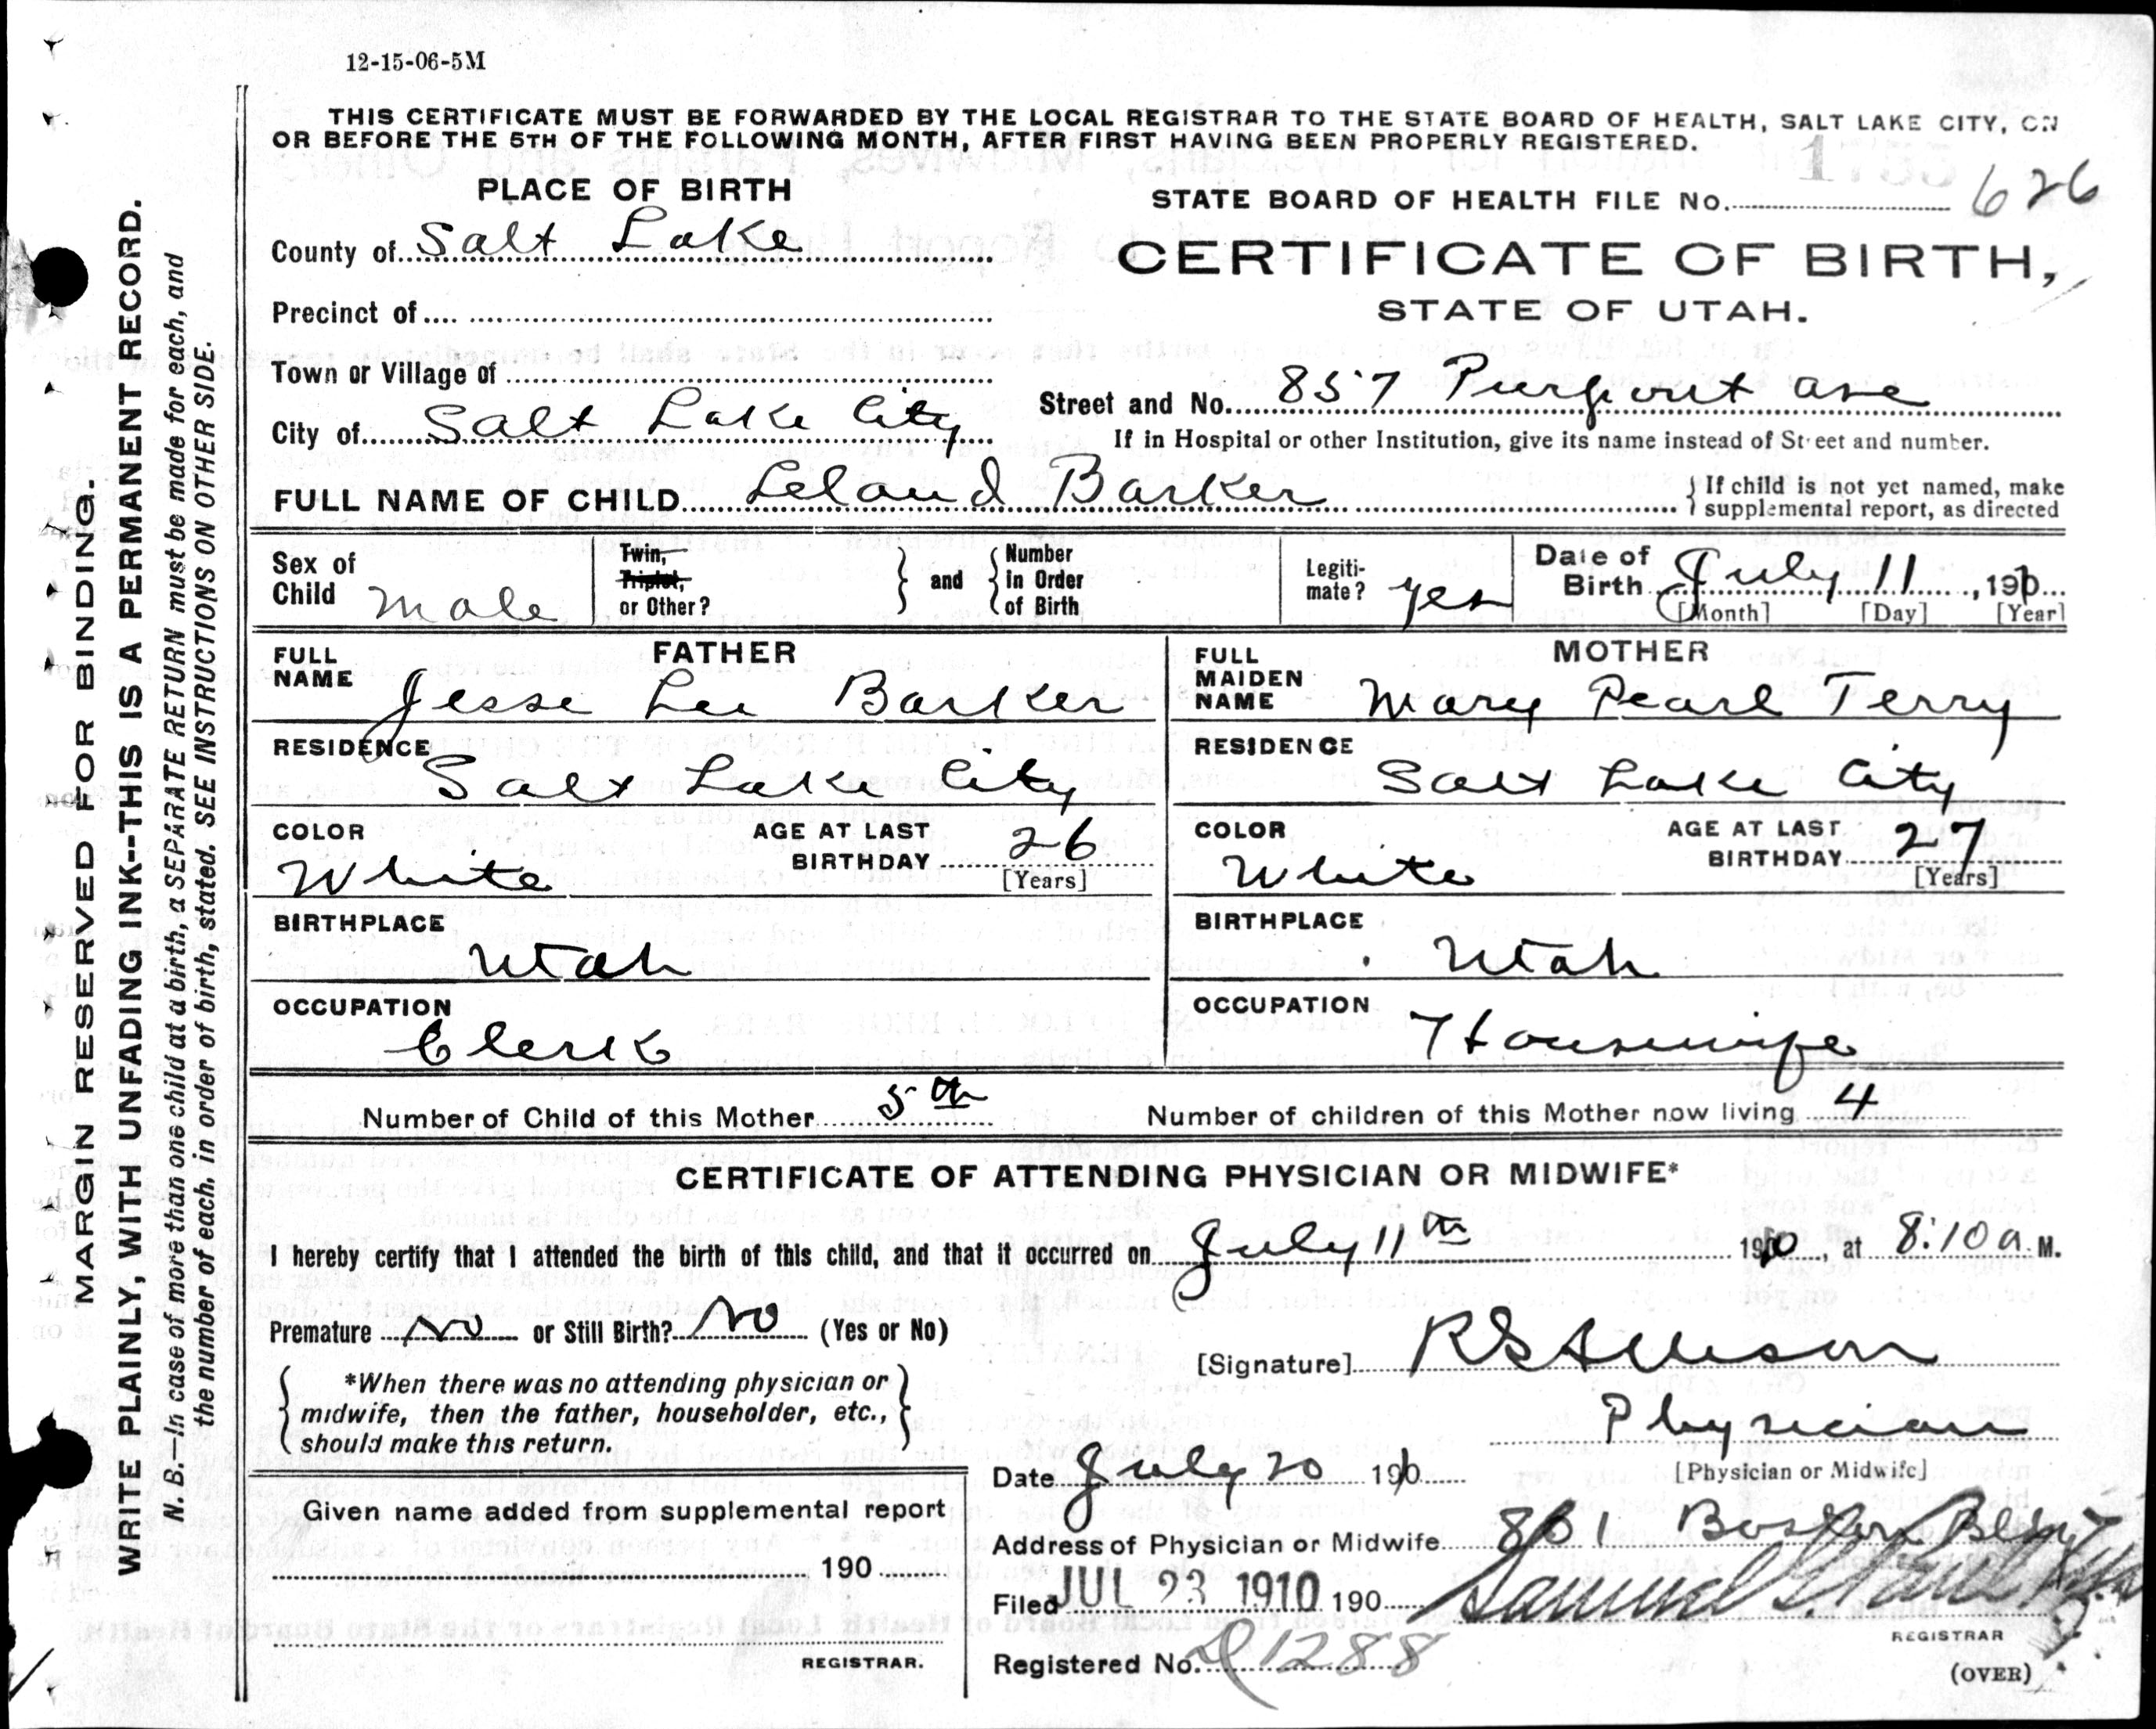 12-15-06-5M
THIS CERTIFICATE MUST BE FORWARDED BY THE LOCAL REGISTRAR TO THE STATE BOARD OF HEALTH, SALT LAKE CITY, ON
OR BEFORE THE 5TH OF THE FOLLOWING MONTH, AFTER FIRST HAVING BEEN PROPERLY REGISTERED.
PLACE OF BIRTH
STATE BOARD OF HEALTH FILE No. 626
County of Salt Lake
CERTIFICATE OF BIRTH,
STATE OF UTAH.
Precinct of
Town or Village of
Street and No. 857 ave
City of Salt Lake City
If in Hospital or other Institution, give its name instead of Street and number.
FULL NAME OF CHILD Leland Barker
If child is not yet named, make
supplemental report, as directed
Sex of Child Male
Twin, Triplet, or Other?
and
Number in Order of Birth
Legiti-mate? yes
Date of Birth July 11, 1910
[Month] [Day] [Year]
FATHER
FULL NAME Jesse Lee Barker
RESIDENCE Salt Lake City
COLOR White
AGE AT LAST BIRTHDAY 26 [Years]
BIRTHPLACE Utah
OCCUPATION Clerk
MOTHER
FULL MAIDEN NAME Mary Pearl Terry
RESIDENCE Salt Lake City
COLOR White
AGE AT LAST BIRTHDAY 27 [Years]
BIRTHPLACE Utah
OCCUPATION Housewife
Number of Child of this Mother 5th
Number of children of this Mother now living 4
CERTIFICATE OF ATTENDING PHYSICIAN OR MIDWIFE*
I hereby certify that I attended the birth of this child, and that it occurred on July 11th 1910, at 8:10 a. M.
Premature No or Still Birth? No (Yes or No)
[Signature] R S Allison
*When there was no attending physician or
midwife, then the father, householder, etc.,
should make this return.
Physician
[Physician or Midwife]
Date July 20 1910
Given name added from supplemental report
190
REGISTRAR.
Address of Physician or Midwife 801 Boston Bldg
Filed JUL 23 1910 190
Samuel
REGISTRAR
Registered No. 1288
(OVER)
MARGIN RESERVED FOR BINDING.
WRITE PLAINLY, WITH UNFADING INK--THIS IS A PERMANENT RECORD.
N. B.—In case of more than one child at a birth, a SEPARATE RETURN must be made for each, and
the number of each, in order of birth, stated. SEE INSTRUCTIONS ON OTHER SIDE.